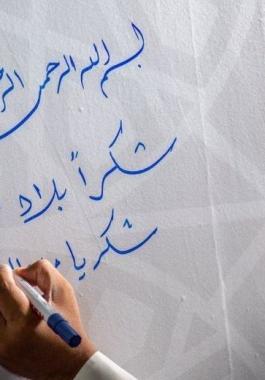 بسم الله الرحمن
شكراً بلاد
شكر يا